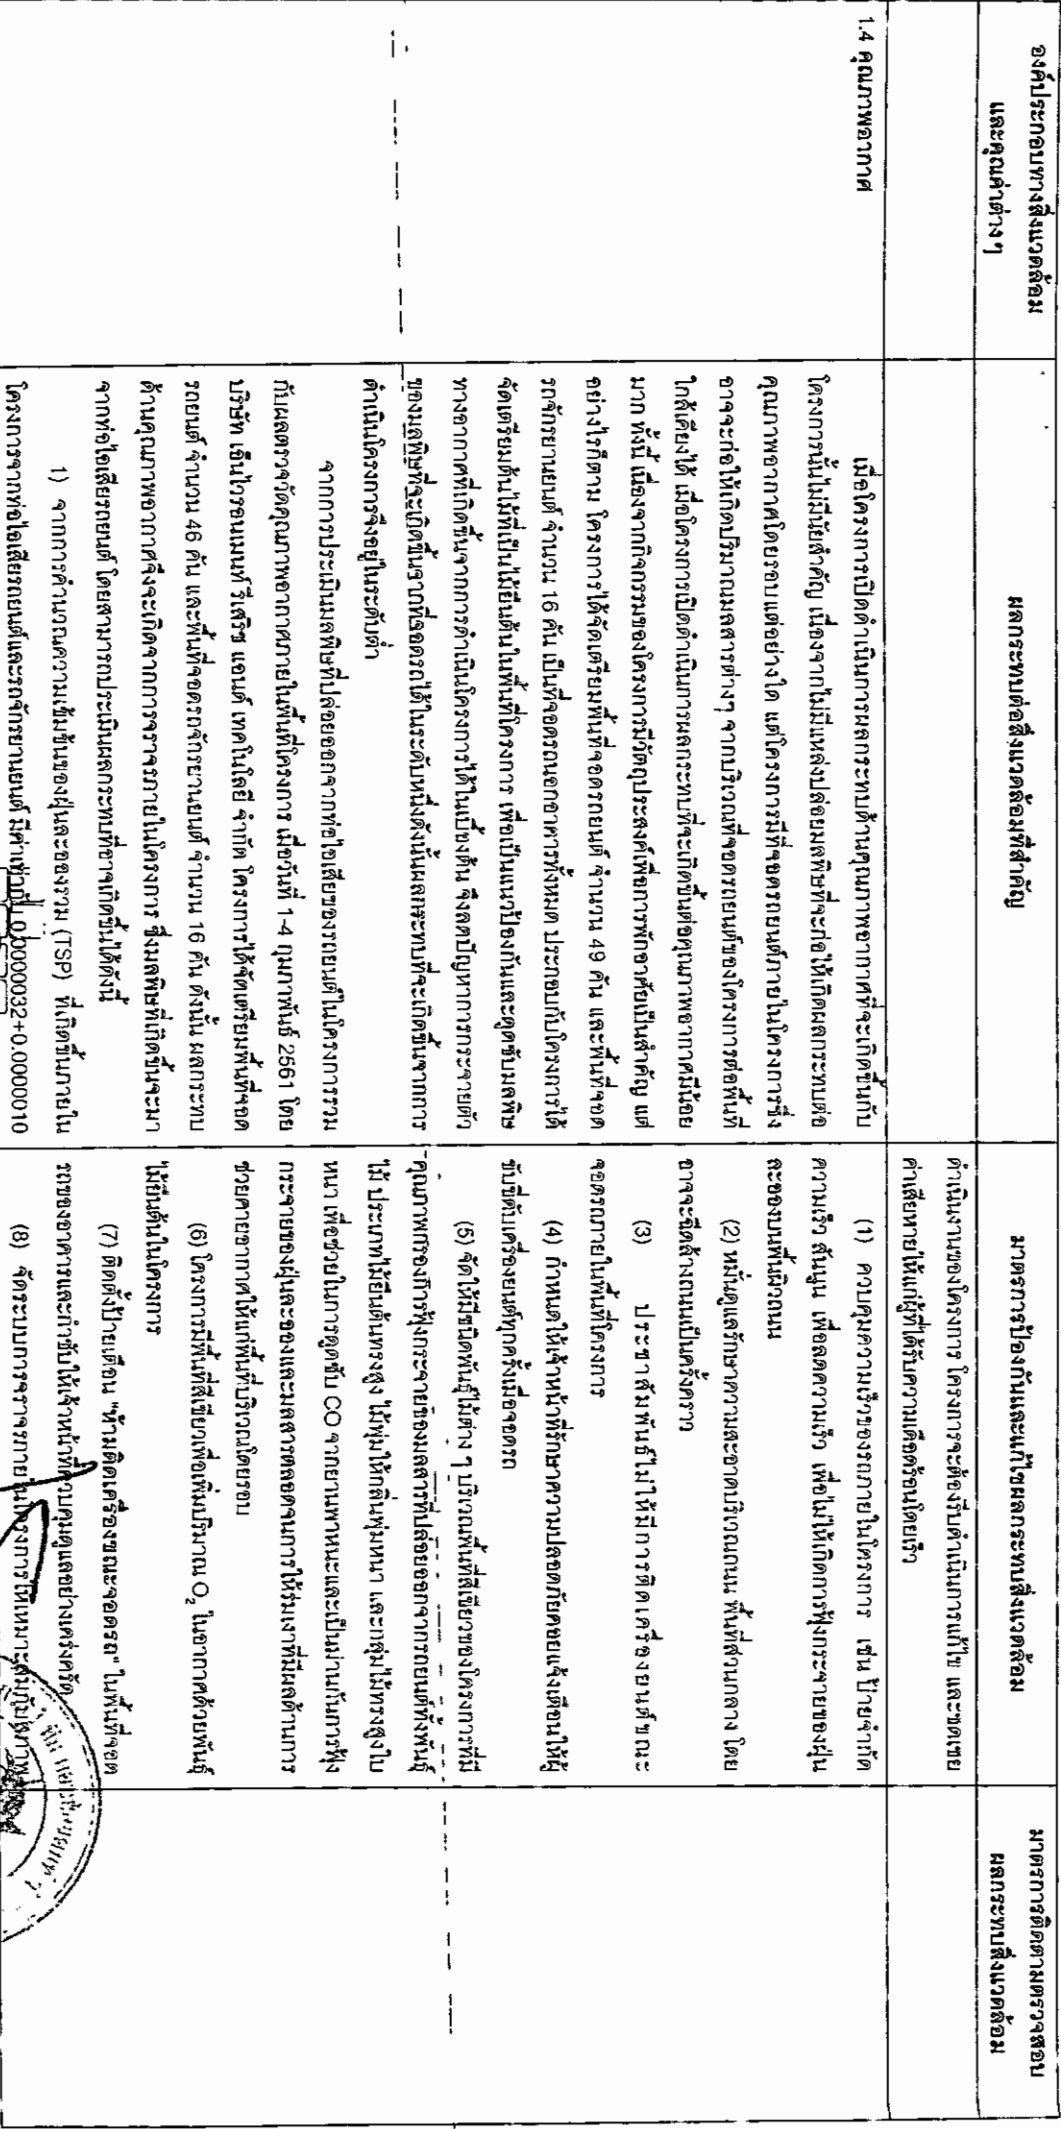 องค์ประกอบทางสิ่งแวดล้อม
และคุณค่าต่างๆ
ผลกระทบต่อสิ่งแวดล้อมที่สำคัญ
มาตรการป้องกันและแก้ไขผลกระทบสิ่งแวดล้อม
มาตรการติดตามตรวจสอบ
ผลกระทบสิ่งแวดล้อม
ดำเนินงานของโครงการ โครงการจะต้องรีบดำเนินการแก้ไข และชดเชย
ค่าเสียหายให้แก่ผู้ที่ได้รับความเดือดร้อนโดยเร็ว
1.4 คุณภาพอากาศ
เมื่อโครงการเปิดดำเนินการผลกระทบด้านคุณภาพอากาศที่จะเกิดขึ้นกับ
โครงการนั้นไม่มีนัยสำคัญ เนื่องจากไม่มีแหล่งปล่อยมลพิษที่จะก่อให้เกิดผลกระทบต่อ
คุณภาพอากาศโดยรอบแต่อย่างใด แต่โครงการมีที่จอดรถยนต์ภายในโครงการซึ่ง
อาจจะก่อให้เกิดปริมาณมลสารต่างๆ จากบริเวณที่จอดรถยนต์ของโครงการต่อพื้นที่
ใกล้เคียงได้ เมื่อโครงการเปิดดำเนินการผลกระทบที่จะเกิดขึ้นต่อคุณภาพอากาศมีน้อย
มาก ทั้งนี้ เนื่องจากกิจกรรมของโครงการมีวัตถุประสงค์เพื่อการพักอาศัยเป็นสำคัญ แต่
อย่างไรก็ตาม โครงการได้จัดเตรียมพื้นที่จอดรถยนต์ จำนวน 49 คัน และพื้นที่จอด
รถจักรยานยนต์ จำนวน 16 คัน เป็นที่จอดรถนอกอาคารทั้งหมด ประกอบกับโครงการได้
จัดเตรียมต้นไม้ที่เป็นไม้ยืนต้นในพื้นที่โครงการ เพื่อเป็นแนวป้องกันและดูดซับมลพิษ
ทางอากาศที่เกิดขึ้นจากการดำเนินโครงการได้ในเบื้องต้น จึงลดปัญหาการกระจายตัว
ของมลพิษที่จะเกิดขึ้นจากที่จอดรถได้ในระดับหนึ่งดังนั้นผลกระทบที่จะเกิดขึ้นจากการ
ดำเนินโครงการจึงอยู่ในระดับต่ำ
จากการประเมินมลพิษที่ปล่อยออกจากท่อไอเสียของรถยนต์ในโครงการรวม
กับผลตรวจวัดคุณภาพอากาศภายในพื้นที่โครงการ เมื่อวันที่ 1-4 กุมภาพันธ์ 2561 โดย
บริษัท เอ็นไวรอนเมนท์ รีเสริช แอนด์ เทคโนโลยี จำกัด โครงการได้จัดเตรียมพื้นที่จอด
รถยนต์ จำนวน 46 คัน และพื้นที่จอดรถจักรยานยนต์ จำนวน 16 คัน ดังนั้น ผลกระทบ
ด้านคุณภาพอากาศจึงจะเกิดจากการจราจรภายในโครงการ ซึ่งมลพิษที่เกิดขึ้นจะมา
จากท่อไอเสียรถยนต์ โดยสามารถประเมินผลกระทบที่อาจเกิดขึ้นได้ดังนี้
1) จากการคำนวณความเข้มข้นของฝุ่นละอองรวม (TSP) ที่เกิดขึ้นภายใน
โครงการจากท่อไอเสียรถยนต์และรถจักรยานยนต์ มีค่าเท่ากับ 0.0000032+0.0000010
(1) ควบคุมความเร็วของรถภายในโครงการ เช่น ป้ายจำกัด
ความเร็ว สันนูน เพื่อลดความเร็ว เพื่อไม่ให้เกิดการฟุ้งกระจายของฝุ่น
ละอองบนพื้นผิวถนน
(2) หมั่นดูแลรักษาความสะอาดบริเวณถนน พื้นที่ส่วนกลาง โดย
อาจจะฉีดล้างถนนเป็นครั้งคราว
(3) ประชาสัมพันธ์ไม่ให้มีการติดเครื่องยนต์ขณะ
จอดรถภายในพื้นที่โครงการ
(4) กำหนดให้เจ้าหน้าที่รักษาความปลอดภัยคอยแจ้งเตือนให้ผู้
ขับขี่ดับเครื่องยนต์ทุกครั้งเมื่อจอดรถ
(5) จัดให้มีชนิดพันธุ์ไม้ต่าง ๆ บริเวณพื้นที่สีเขียวของโครงการที่มี
คุณภาพกรองการฟุ้งกระจายของมลสารที่ปล่อยออกจากรถยนต์ทั้งพันธุ์
ไม้ ประเภทไม้ยืนต้นทรงสูง ไม้พุ่มให้กลิ่นพุ่มหนา และกลุ่มไม้ทรงสูงใบ
หนา เพื่อช่วยในการดูดซับ CO จากยานพาหนะและเป็นม่านกันการฟุ้ง
กระจายของฝุ่นละอองและมลสารตลอดจนการให้ร่มเงาที่มีผลด้านการ
ช่วยคายอากาศให้แก่พื้นที่บริเวณโดยรอบ
(6) โครงการมีพื้นที่สีเขียวเพื่อเพิ่มปริมาณ O₂ ในอากาศด้วยพันธุ์
ไม้ยืนต้นในโครงการ
(7) ติดตั้งป้ายเตือน "ห้ามติดเครื่องขณะจอดรถ" ในพื้นที่จอด
รถของอาคารและกำชับให้เจ้าหน้าที่ควบคุมดูแลอย่างเคร่งครัด
(8) จัดระบบการจราจรภายในโครงการให้เหมาะสมกับสภาพ